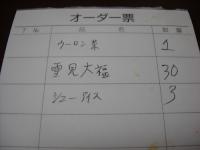 オーダー票
T No 品名 数量
ウーロン茶 1
雪見大福 30
シューアイス 3